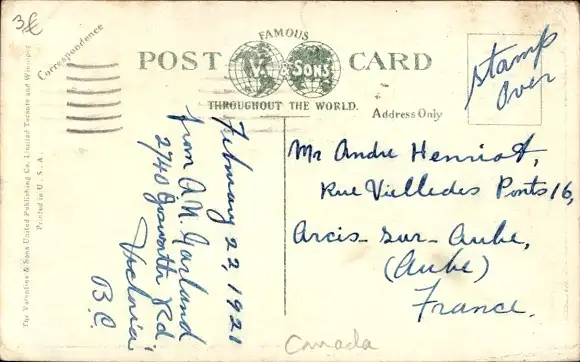 3£
Correspondence
FAMOUS
POST CARD
V. & SONS
THROUGHOUT THE WORLD.
Address Only
Stamp
Over
The Valentine & Sons United Publishing Co., Limited Toronto and Winnipeg
Printed in U. S. A.
February 22, 1921
from A. N. Garland
2740 Rd
Victoria
B.C.
Mr Andre Henriot,
Rue Vielledes Ponts 16,
Arcis-sur-Aube,
(Aube)
France.
Canada